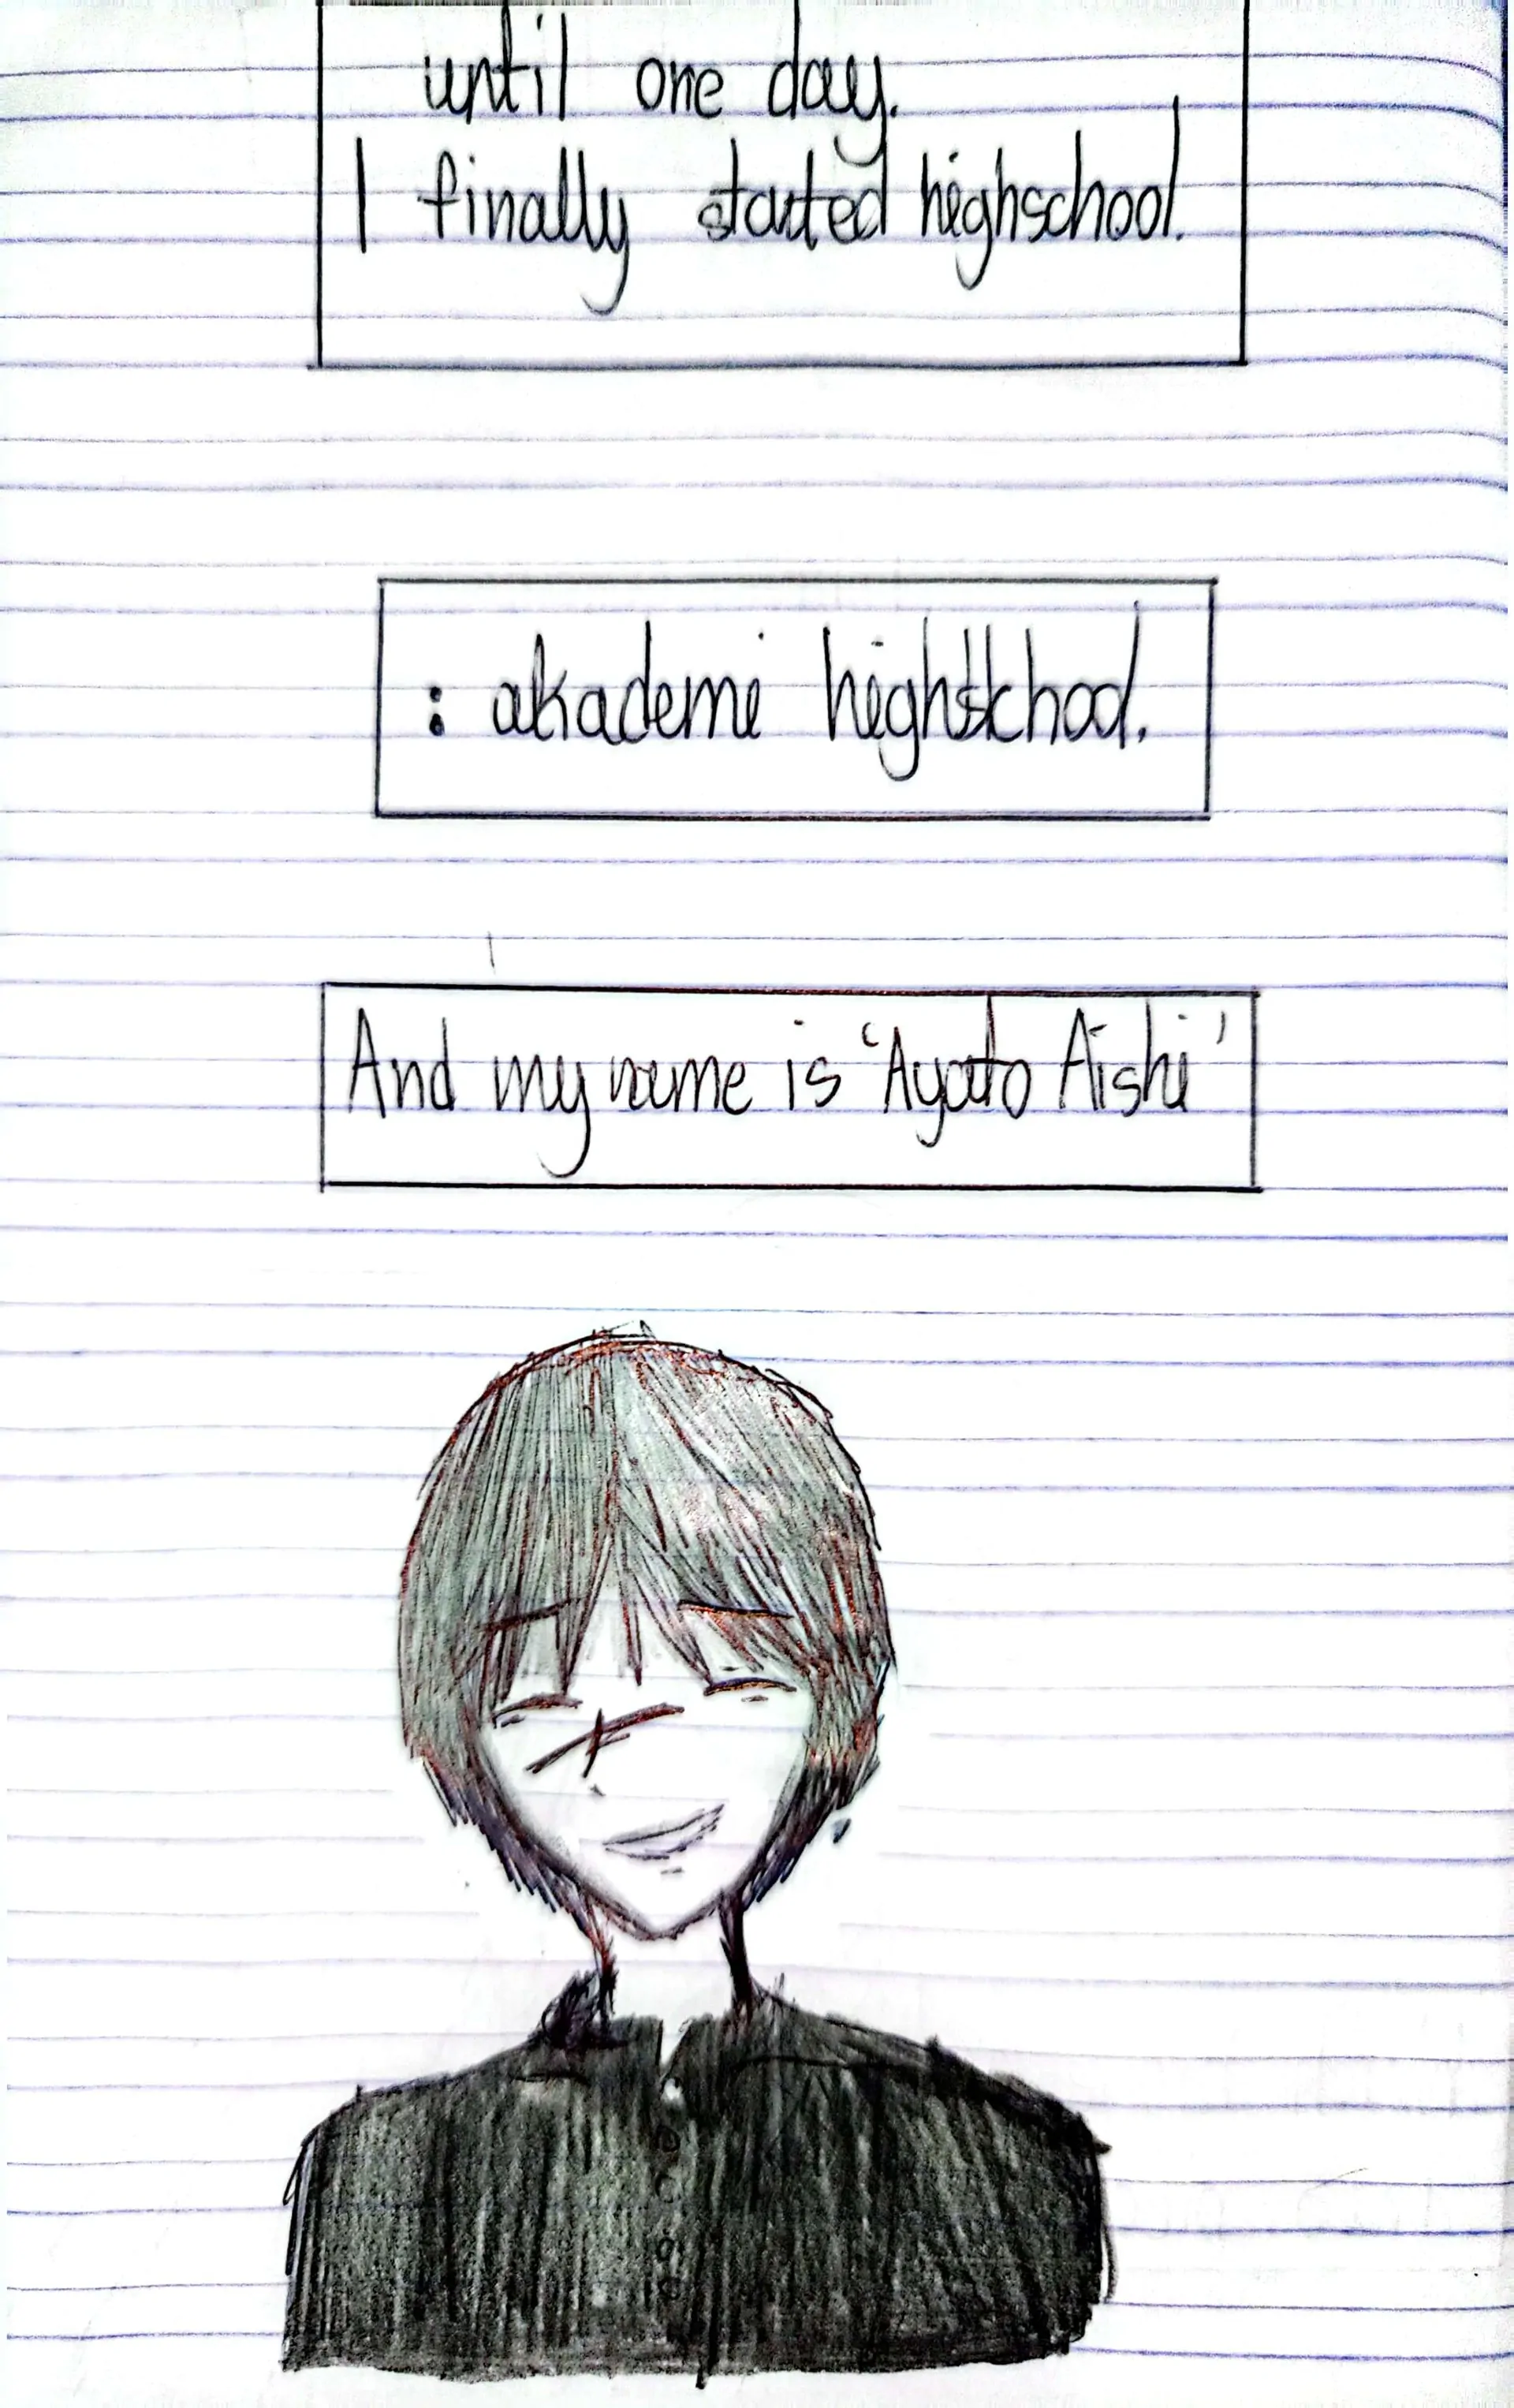 until one day.
I finally started highschool.
: akademi highskhool.
And my name is 'Ayato Aishi'